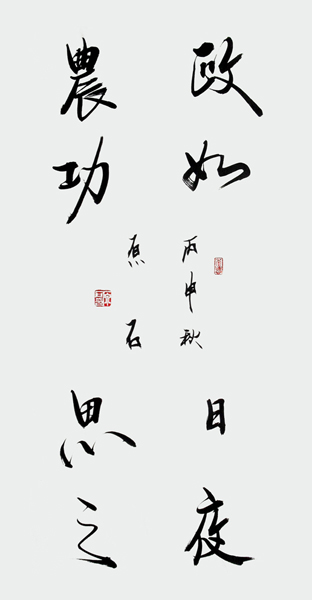 政如
農功
日夜
思之
丙申秋
石